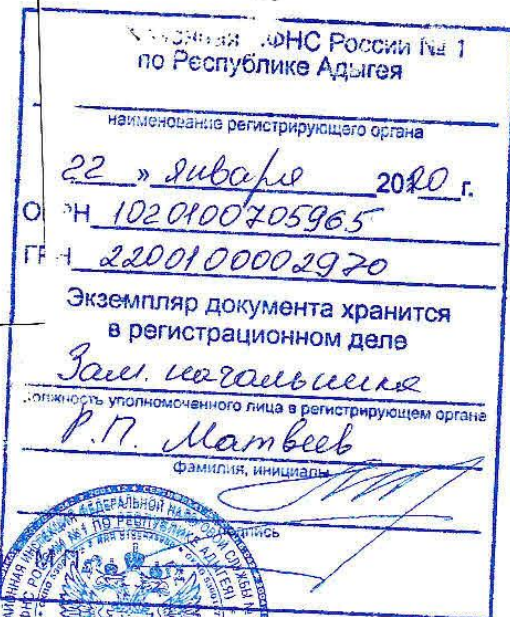 ФНС России № 1
по Республике Адыгея
наименование регистрирующего органа
22 » января 2020 г.
ОГРН 1020100705965
ГРН 2200100002970
Экземпляр документа хранится
в регистрационном деле
Зам. начальника
должность уполномоченного лица в регистрирующем органе
Р.П. Матвеев
фамилия, инициалы
подпись
ФЕДЕРАЛЬНОЙ НАЛОГОВОЙ СЛУЖБЫ №
РОССИИ №1 ПО РЕСПУБЛИКЕ АДЫГЕЯ